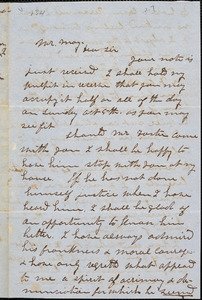 Mr. May,
Dear Sir
Your note is
just received. I shall hold my
pulpit in reserve that you may
occupy it half or all of the day
on Sunday as you may
see fit.
Should Mr. Foster come
with you I shall be happy to
have him stop with you at my
house. If he has not done
himself justice when I have
heard him I shall be glad of
an opportunity to hear him
better. I have always admired
his frankness & moral courage
& have only regretted what appeared
to me a spirit of acrimony & de-
nunciation for which he seemed